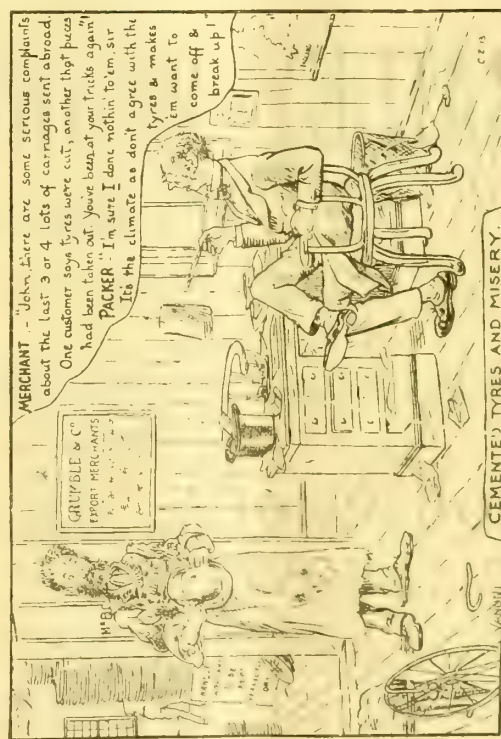 MERCHANT.- "John, there are some serious complaints
about the last 3 or 4 lots of carriages sent abroad.
One customer says tyres were cut, another that pieces
had been taken out. You've been at your tricks again"!
PACKER "I'm sure I done nothin' to 'em, sir
It's the climate as don't agree with the
tyres & makes
'em want to
come off &
break up!"
GRUMBLE & Co
EXPORT MERCHANTS
M&B
BE
C 2 13
VANNI
CEMENTED TYRES AND MISERY.